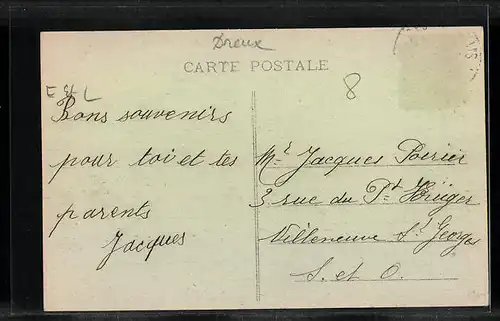 Dreux
CARTE POSTALE
8
E & L
Bons souvenirs
pour toi et tes
parents
Jacques
Mr Jacques Poirier
3 rue du Pt Krüger
Villeneuve St Georges
S. et O.